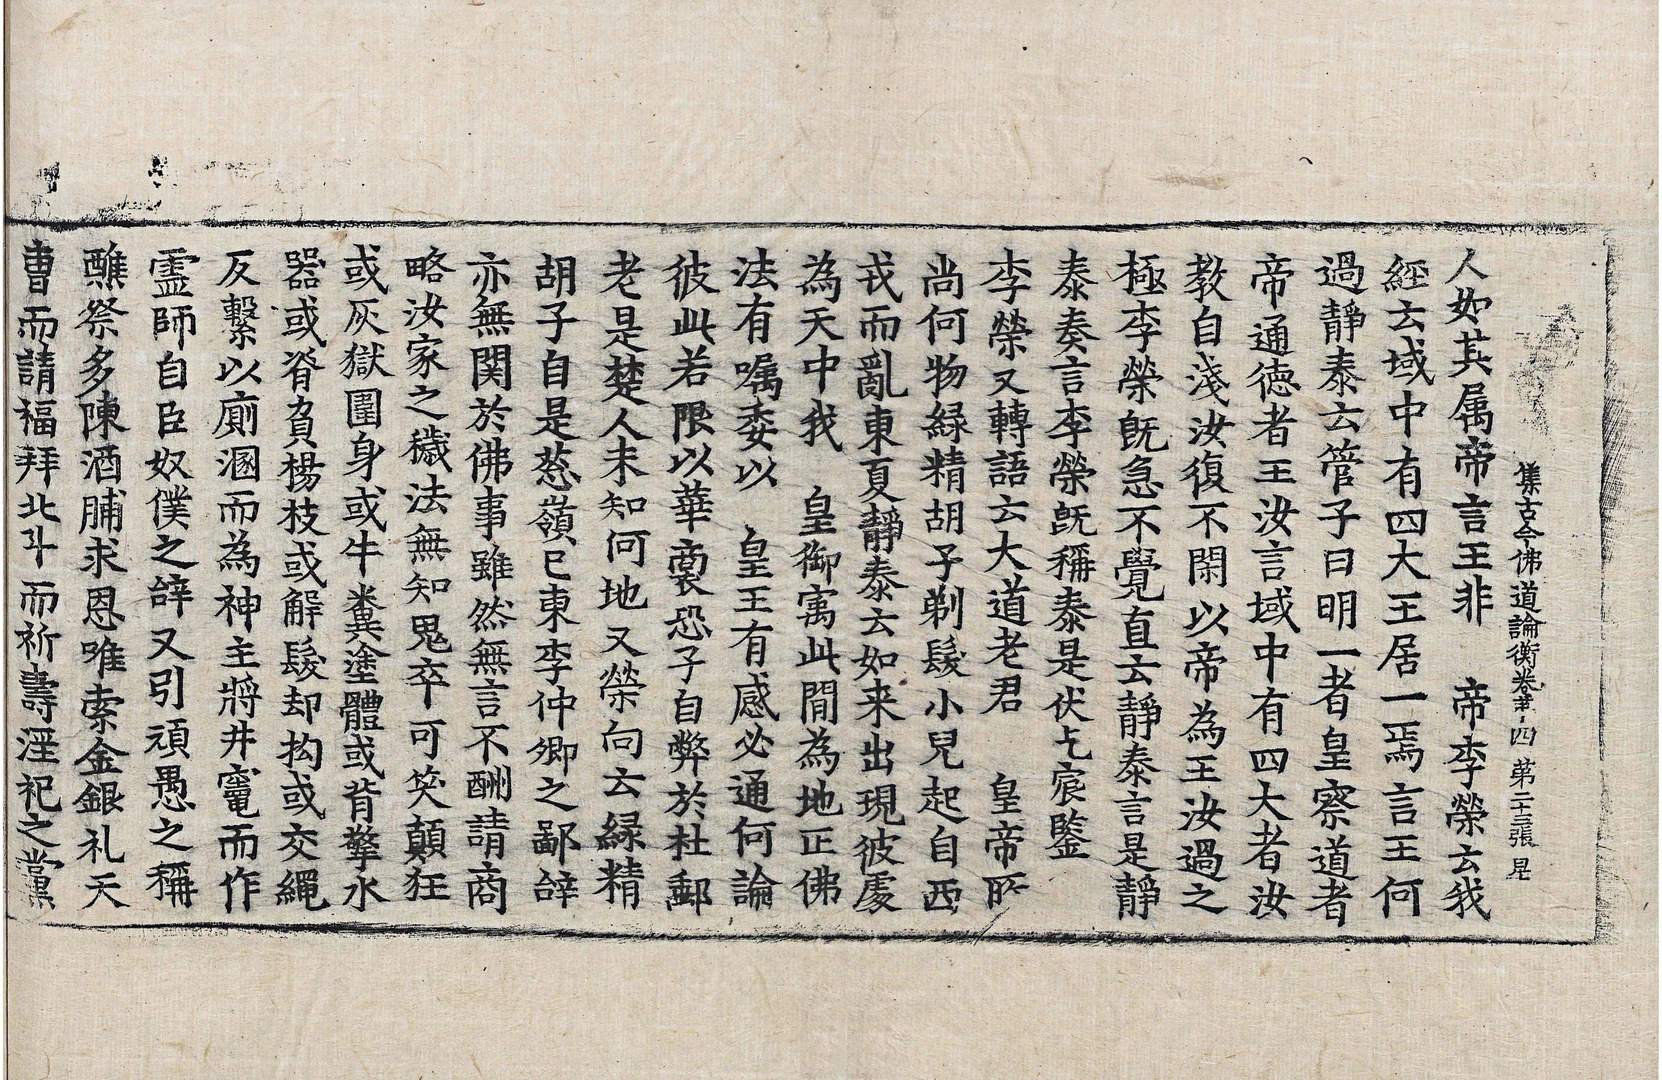 集古今佛道論衡卷第四 第二十三張 㫒
人如其属帝言王非 帝李榮云我
經云域中有四大王居一焉言王何
過靜泰云管子曰明一者皇察道者
帝通德者王汝言域中有四大者汝
教自淺汝復不閑以帝為王汝過之
極李榮旣急不覺直云靜泰言是靜
泰奏言李榮旣稱泰是伏乞宸鑒
李榮又轉語云大道老君 皇帝所
尚何物緑精胡子剃髮小兒起自西
戎而亂東夏靜泰云如来出現彼處
為天中我 皇御寓此間為地正佛
法有囑委以 皇王有感必通何論
彼此若限以華裔恐子自弊於杜郵
老是楚人未知何地又榮向云緑精
胡子自是葱嶺已東李仲卿之鄙辝
亦無関於佛事雖然無言不酬請商
略汝家之穢法無知鬼卒可笑顛狂
或灰獄圍身或牛糞塗體或背擎水
器或脊負楊枝或解髮却拘或交繩
反繫以廁溷而為神主將井竈而作
靈師自臣奴僕之辝又引頑愚之稱
醮祭多陳酒脯求恩唯索金銀礼天
曹而請福拜北斗而祈壽淫祀之黨